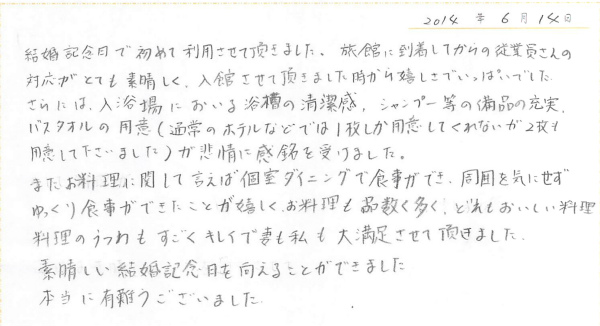 2014 年 6 月 14 日
結婚記念日で初めて利用させて頂きました。旅館に到着してからの従業員さんの
対応がとても素晴しく、入館させて頂きました時から嬉しさでいっぱいでした。
さらには、入浴場における浴槽の清潔感、シャンプー等の備品の充実、
バスタオルの用意(通常のホテルなどでは1枚しか用意してくれないが2枚も
用意して下さいました)が非情に感銘を受けました。
またお料理に関して言えば個室ダイニングで食事ができ、周囲を気にせず
ゆっくり食事ができたことが嬉しく、お料理も品数く多く、どれもおいしい料理
料理のうつわもすごくキレイで妻も私も大満足させて頂きました。
素晴しい結婚記念日を向えることができました
本当に有難うございました。